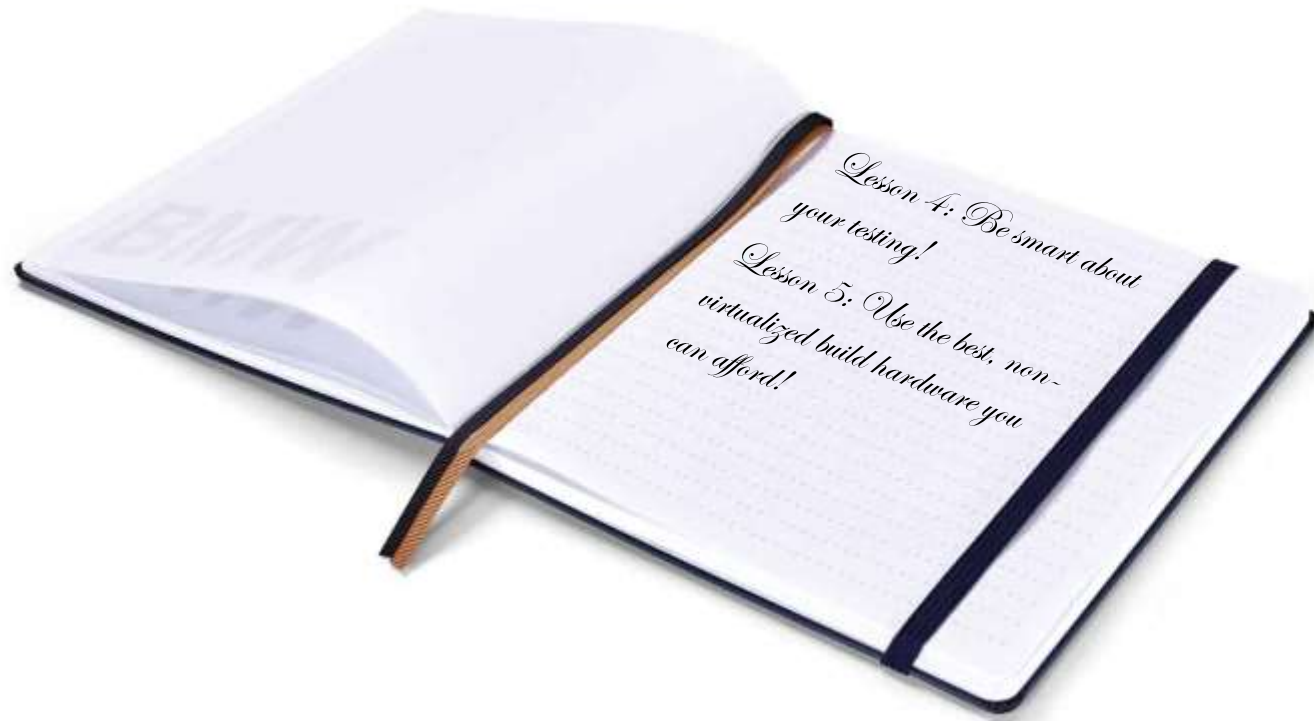 Lesson 4: Be smart about
your testing!
Lesson 5: Use the best, non-
virtualized build hardware you
can afford!